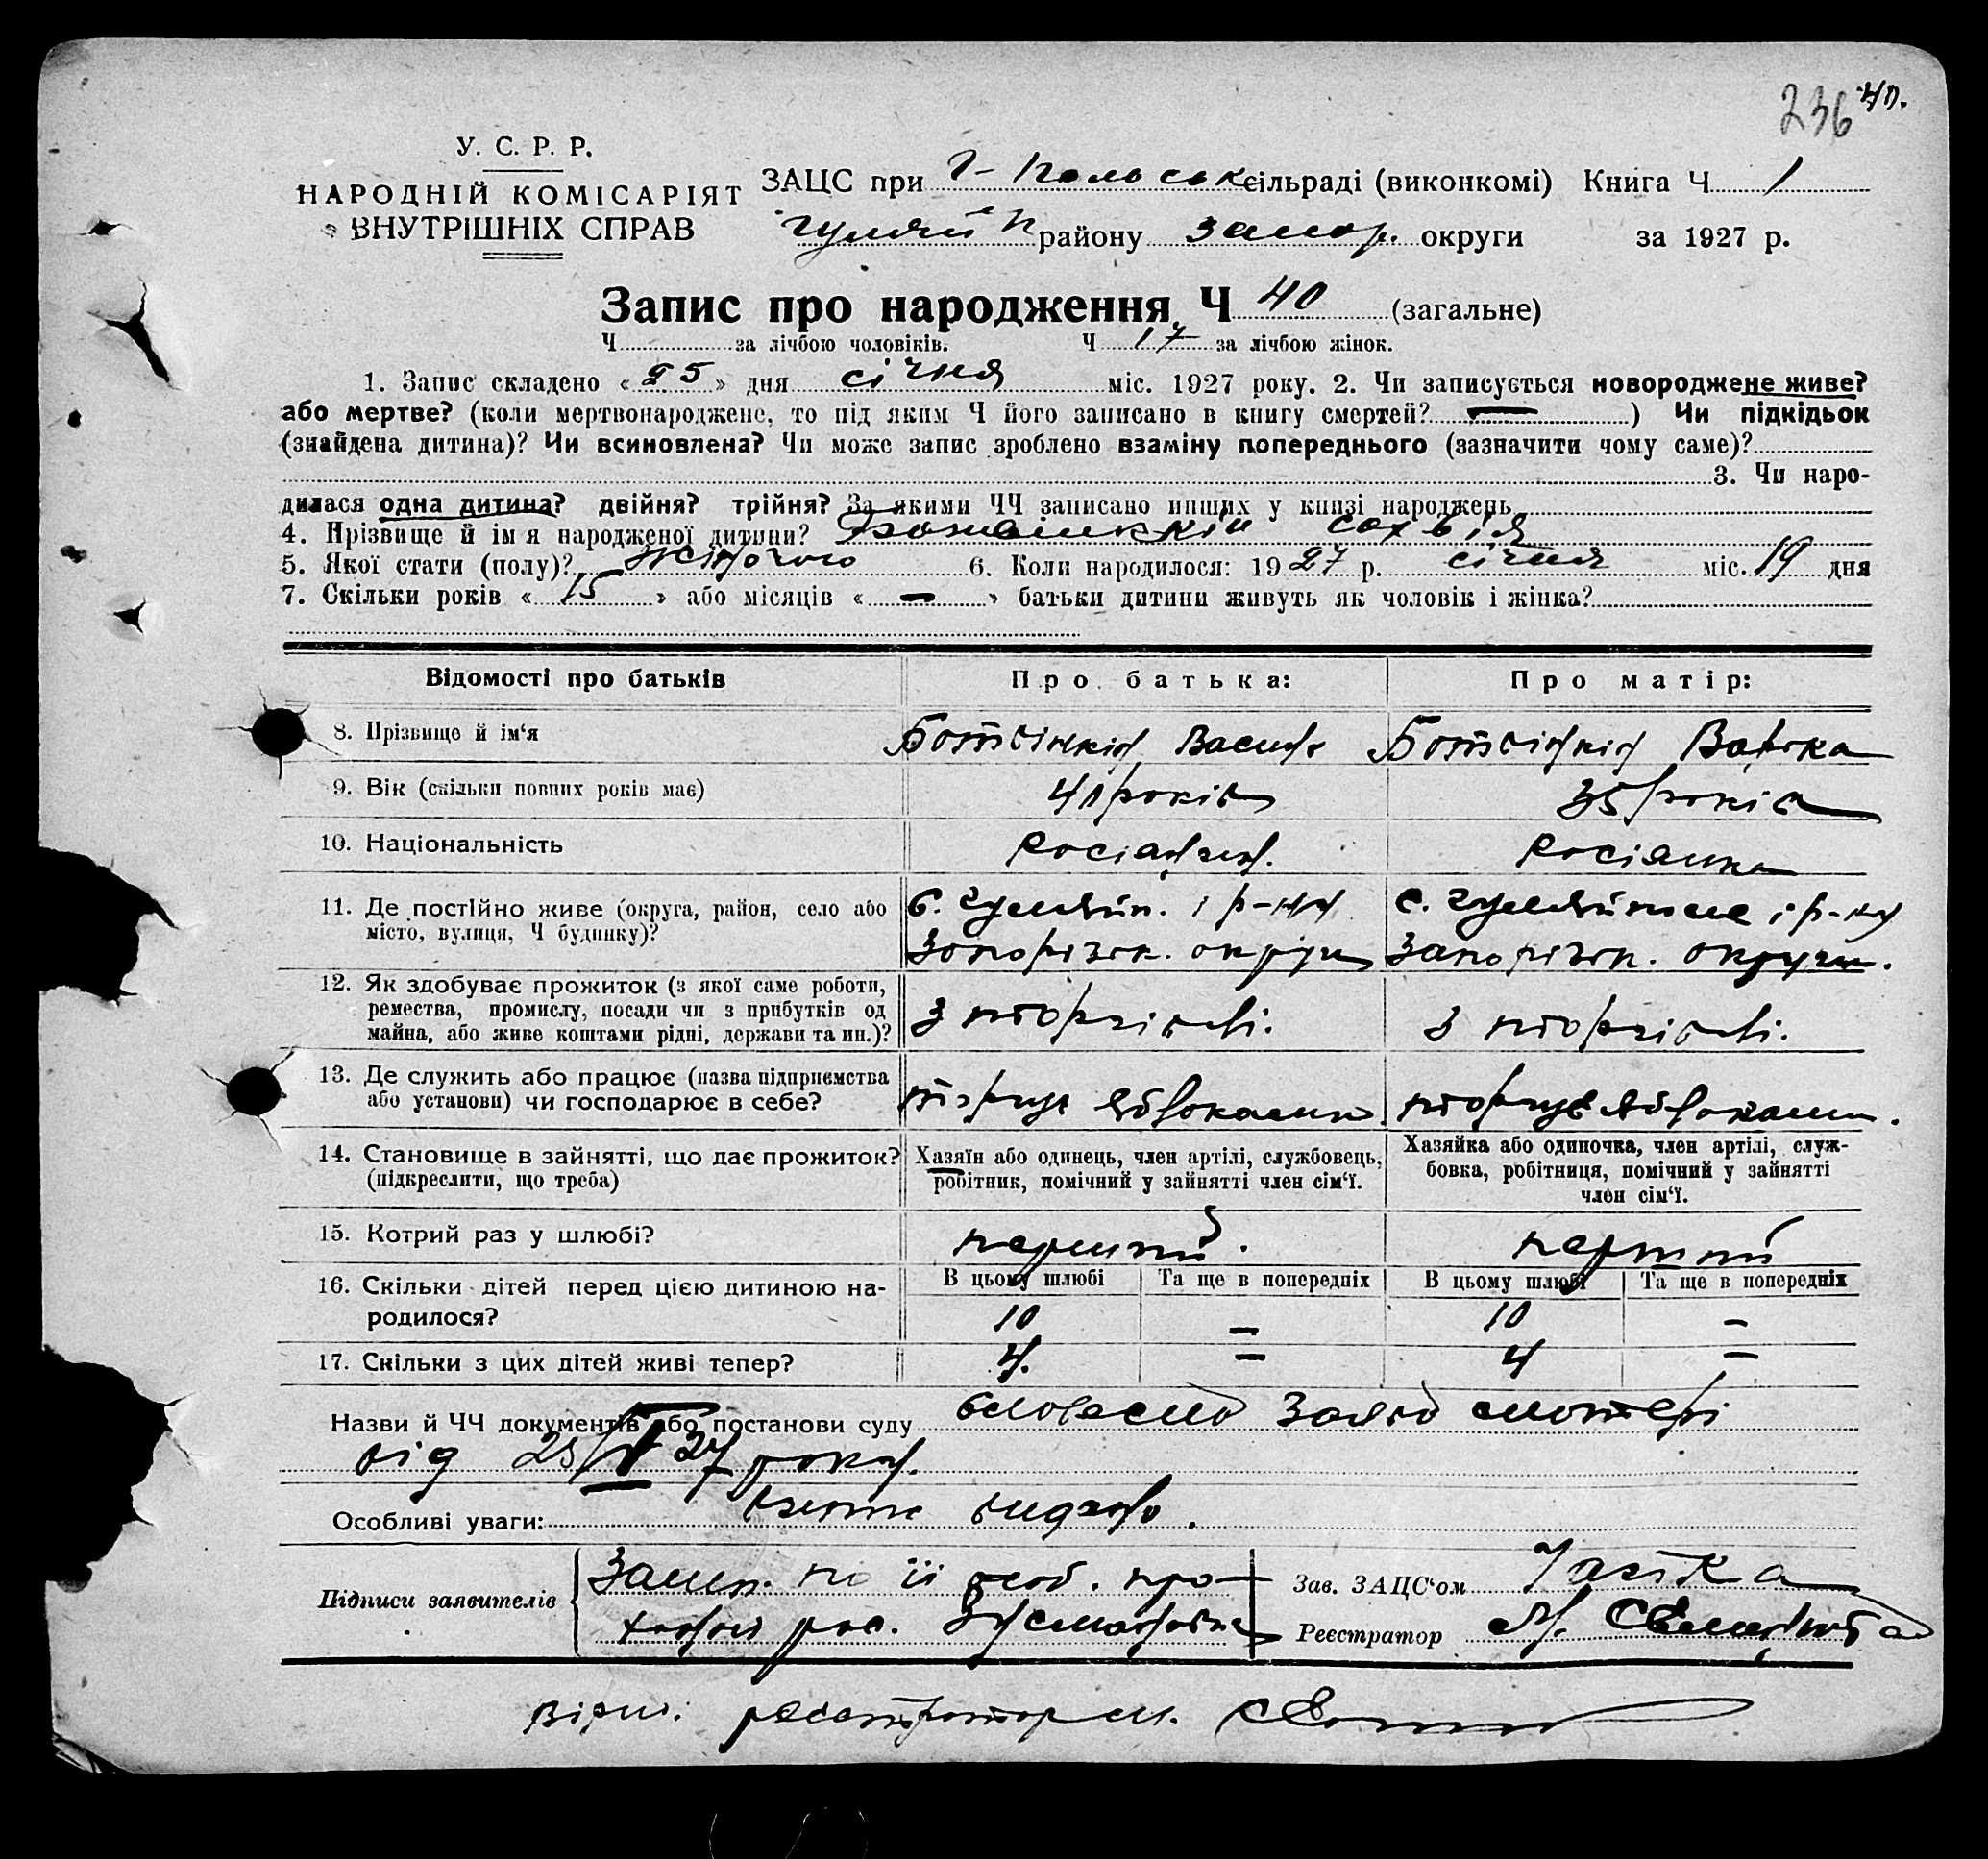 236 40.
У. С. Р. Р.
НАРОДНІЙ КОМІСАРІЯТ
ВНУТРІШНІХ СПРАВ
ЗАЦС при Г-Польськ сільраді (виконкомі) Книга Ч 1
Гуляй П району Запор. округи за 1927 р.
Запис про народження Ч 40 (загальне)
Ч за лічбою чоловіків. Ч 17 за лічбою жінок.
1. Запис складено « 25 » дня січня міс. 1927 року. 2. Чи записується новороджене живе?
або мертве? (коли мертвонароджене, то під яким Ч його записано в книгу смертей? — ) Чи підкідьок
(знайдена дитина)? Чи всиновлена? Чи може запис зроблено взаміну попереднього (зазначити чому саме)?
3. Чи наро-
дилася одна дитина? двійня? трійня? За якими ЧЧ записано инших у книзі народжень
4. Прізвище й імя народженої дитини?
5. Якої стати (полу)? жіночого 6. Коли народилося: 1927 р. січня міс. 19 дня
7. Скільки років « 15 » або місяців « — » батьки дитини живуть як чоловік і жінка?
Відомості про батьків Про батька: Про матір:
8. Прізвище й ім'я
9. Вік (скільки повних років має) 41 років 35 років
10. Національність росіянин. росіянка
11. Де постійно живе (округа, район, село або
місто, вулиця, Ч будинку)?
с. Гуляйп. і р-ну с. Гуляйполе і р-ну
Запорізьк. округи Запорізьк. округи.
12. Як здобуває прожиток (з якої саме роботи,
ремества, промислу, посади чи з прибутків од
майна, або живе коштами рідні, держави та ин.)?
з торгівлі. з торгівлі.
13. Де служить або працює (назва підприємства
або установи) чи господарює в себе?
торгує яблоками. торгує яблоками.
14. Становище в зайнятті, що дає прожиток?
(підкреслити, що треба)
Хазяїн або одинець, член артілі, службовець,
робітник, помічний у зайнятті член сім'ї.
Хазяйка або одиночка, член артілі, служ-
бовка, робітниця, помічний у зайнятті
член сім'ї.
15. Котрий раз у шлюбі? перший. перший
16. Скільки дітей перед цією дитиною на-
родилося?
В цьому шлюбі Та ще в попередніх В цьому шлюбі Та ще в попередніх
10 — 10 —
17. Скільки з цих дітей живі тепер? 4. — 4 —
Назви й ЧЧ документів або постанови суду словесно заяво матері
від 25/I 27 року.
Особливі уваги: видано.
Підписи заявителів
по її особ. про-
Зав. ЗАЦС'ом
Реєстратор
Вірно: реєстратор